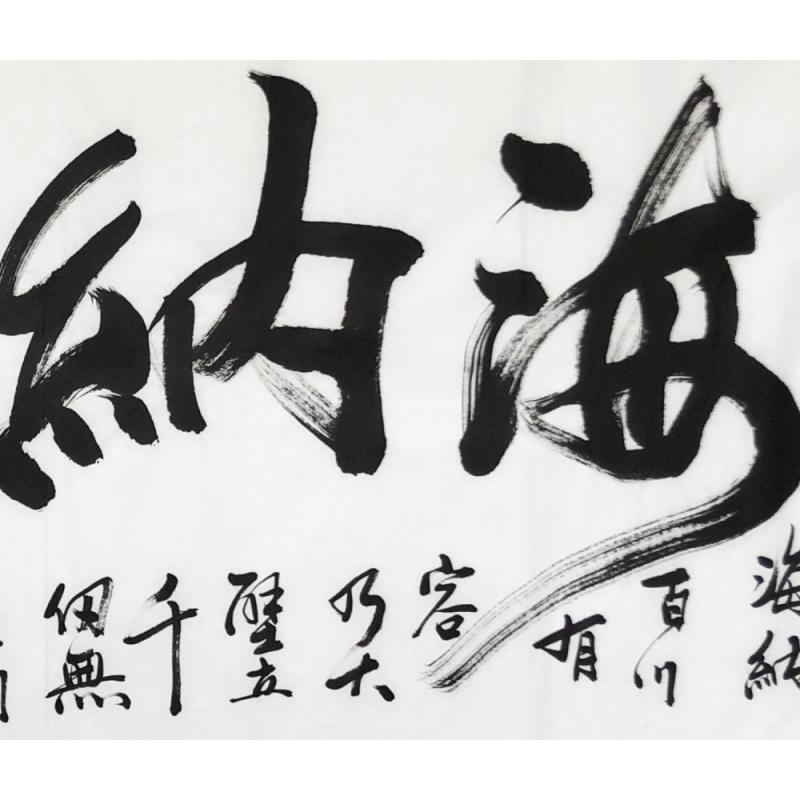 海納
海納
百川
有
容
乃大
壁立
千
仞無